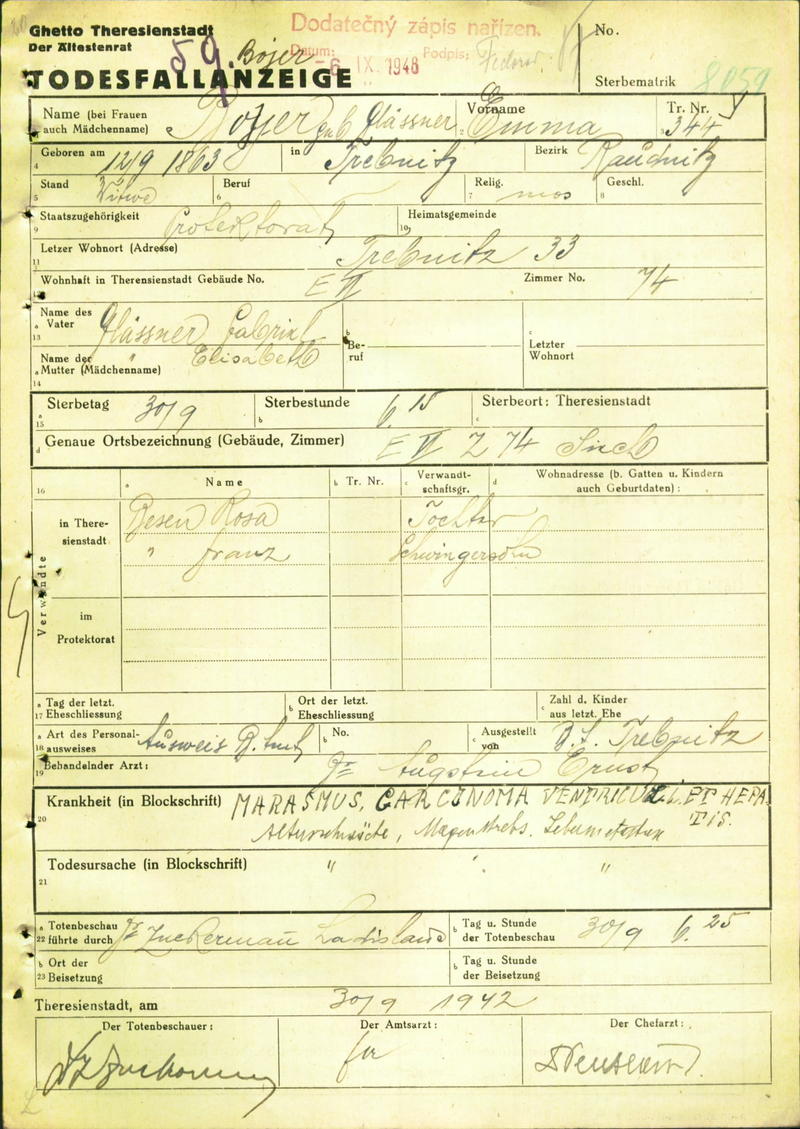 Ghetto Theresienstadt
Der Ältestenrat
59. Bojer
Dodatečný zápis nařízen.
Datum: -6 IX. 1948 Podpis:
No.
TODESFALLANZEIGE
Sterbematrik 8059
Name (bei Frauen auch Mädchenname) geb Glässner
2 Vorname Emma
3 Tr. Nr. 344
4 Geboren am 12/9 1863 in Trebnitz Bezirk Raudnitz
5 Stand Witwe
6 Beruf
7 Relig. mos
8 Geschl.
9 Staatszugehörigkeit Protektorat
10 Heimatsgemeinde
11 Letzer Wohnort (Adresse) Trebnitz 33
Wohnhaft in Theresienstadt Gebäude No. E VI Zimmer No. 74
13 a Name des Vater Glässner Gabriel
b Beruf
c Letzter Wohnort
14 a Name der Mutter (Mädchenname) " Elisabeth
15 a Sterbetag 30/9 b Sterbestunde 6.15 c Sterbeort: Theresienstadt
d Genaue Ortsbezeichnung (Gebäude, Zimmer) E VI Z 74
16 a Name b Tr. Nr. c Verwandtschaftsgr. d Wohnadresse (b. Gatten u. Kindern auch Geburtdaten) :
Verwandte
in Theresienstadt
Rosa Tochter
" Franz Schwingersohn
im Protektorat
17 a Tag der letzt. Eheschliessung
b Ort der letzt. Eheschliessung
c Zahl d. Kinder aus letzt. Ehe
18 a Art des Personalausweises Ausweis
b No.
c Ausgestellt von Trebnitz
19 Behandelnder Arzt: Dr Augstein Ernst
20 Krankheit (in Blockschrift) MARASMUS, CARCINOMA VENTRICULI ET HEPATIS.
Altersschwäche, Magenkrebs.
21 Todesursache (in Blockschrift) " " "
22 a Totenbeschau führte durch Dr Zuckermann Ladislaus
b Tag u. Stunde der Totenbeschau 30/9 6.25
23 b Ort der Beisetzung
b Tag u. Stunde der Beisetzung
Theresienstadt, am 30/9 1942
Der Totenbeschauer:
Der Amtsarzt:
Der Chefarzt: